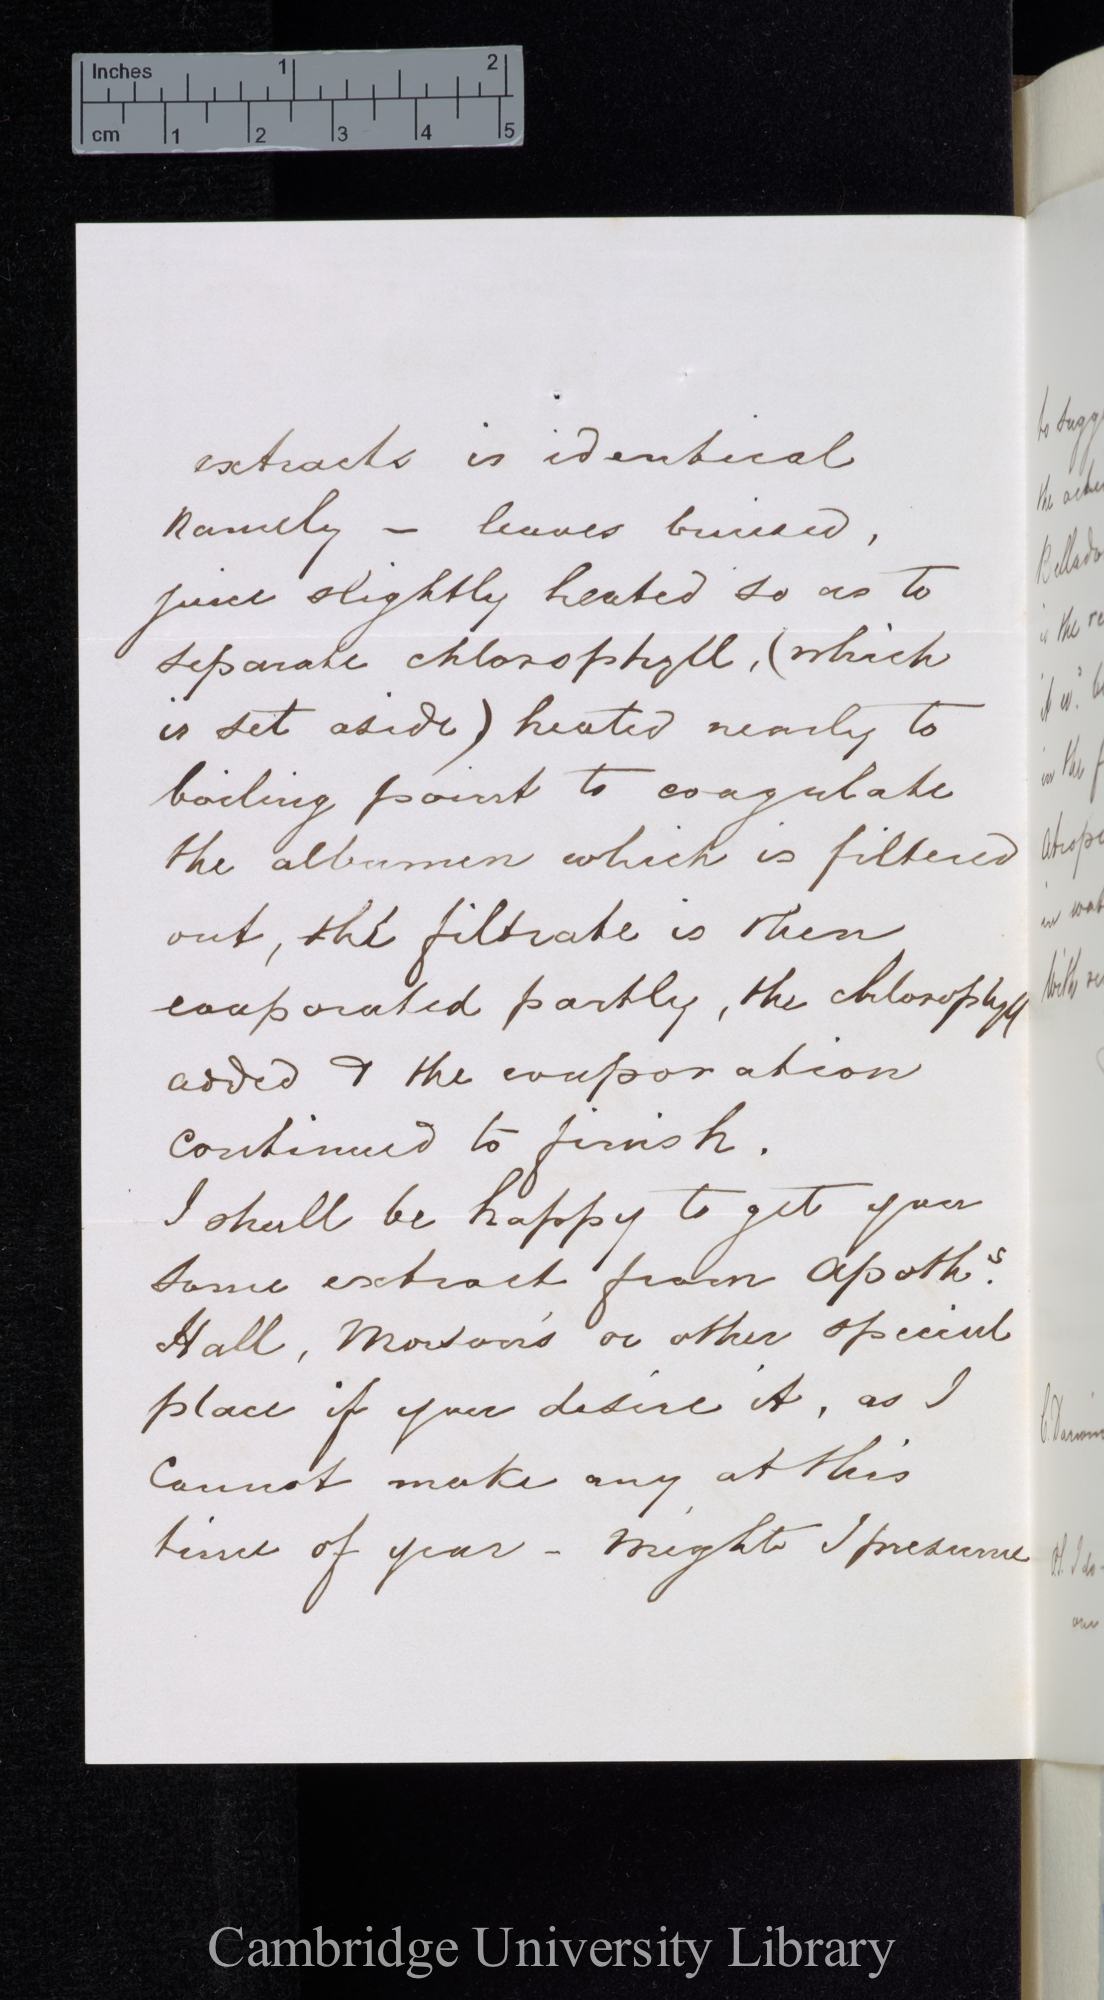 Inches 1 2
cm 1 2 3 4 5
extracts is identical
namely – leaves bruised,
juice slightly heated so as to
separate chlorophyll, (which
is set aside) heated nearly to
boiling point to coagulate
the albumen which is filtered
out, the filtrate is then
evaporated partly, the chlorophyll
added & the evaporation
continued to finish.
I shall be happy to get you
some extract from Apoth^s.
Hall, Morson's or other special
place if you desire it, as I
cannot make any at this
time of year – Might I presume
to sugg
the
Bellado
is the re
it w^d. b
in the f
Atrop
in wat
With
C. Darwin
P.S. I do
Cambridge University Library